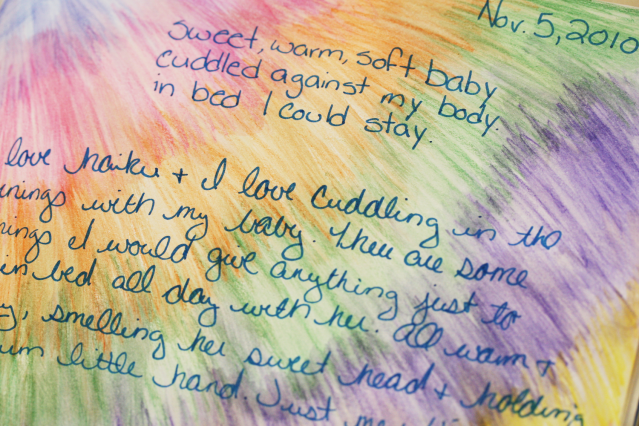 Nov. 5, 2010
sweet, warm, soft baby
cuddled against my body.
in bed I could stay.
love haiku + I love cuddling in the
nings with my baby. There are some
nings I would give anything just to
in bed all day with her. All warm +
y, smelling her sweet head + holding
um little hand. Just